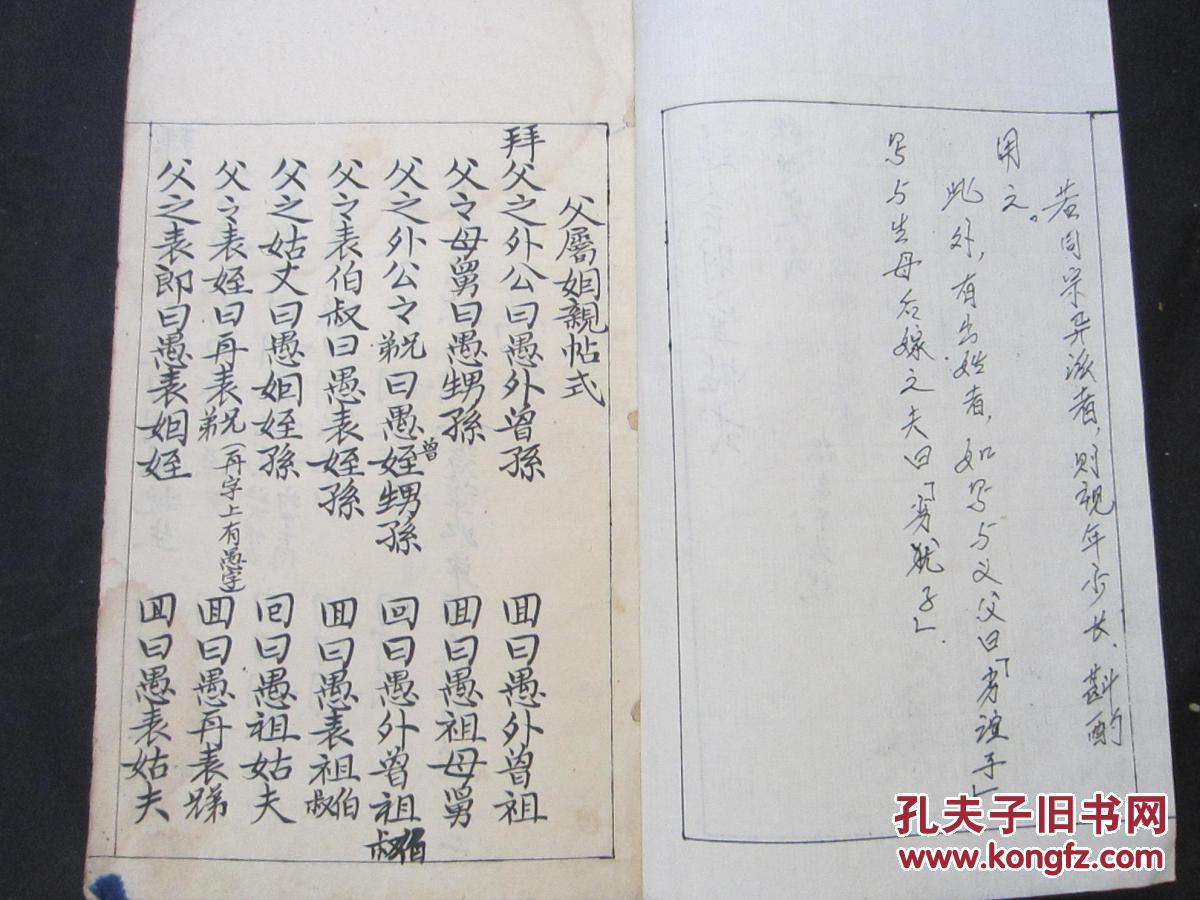 若同宗异派者，则视年京长、斟酌
用之。
此外，有出姓者，如写与义父曰「劣谊子」
写与生母后嫁之夫曰「劣犹子」.
父屬姻親帖式
拜父之外公曰愚外曾孫 囬曰愚外曾祖
父之母舅曰愚甥孫 囬曰愚祖母舅
父之外公之兄弟曰愚曾姪甥孫 回曰愚外曾祖伯叔
父之表伯叔曰愚表姪孫 囬曰愚表祖伯叔
父之姑丈曰愚姻姪孫 囘曰愚祖姑夫
父之表姪曰再表兄弟（再字上有愚字） 囬曰愚再表兄弟
父之表郎曰愚表姻姪 囬曰愚表姑夫
孔夫子旧书网
www.kongfz.com